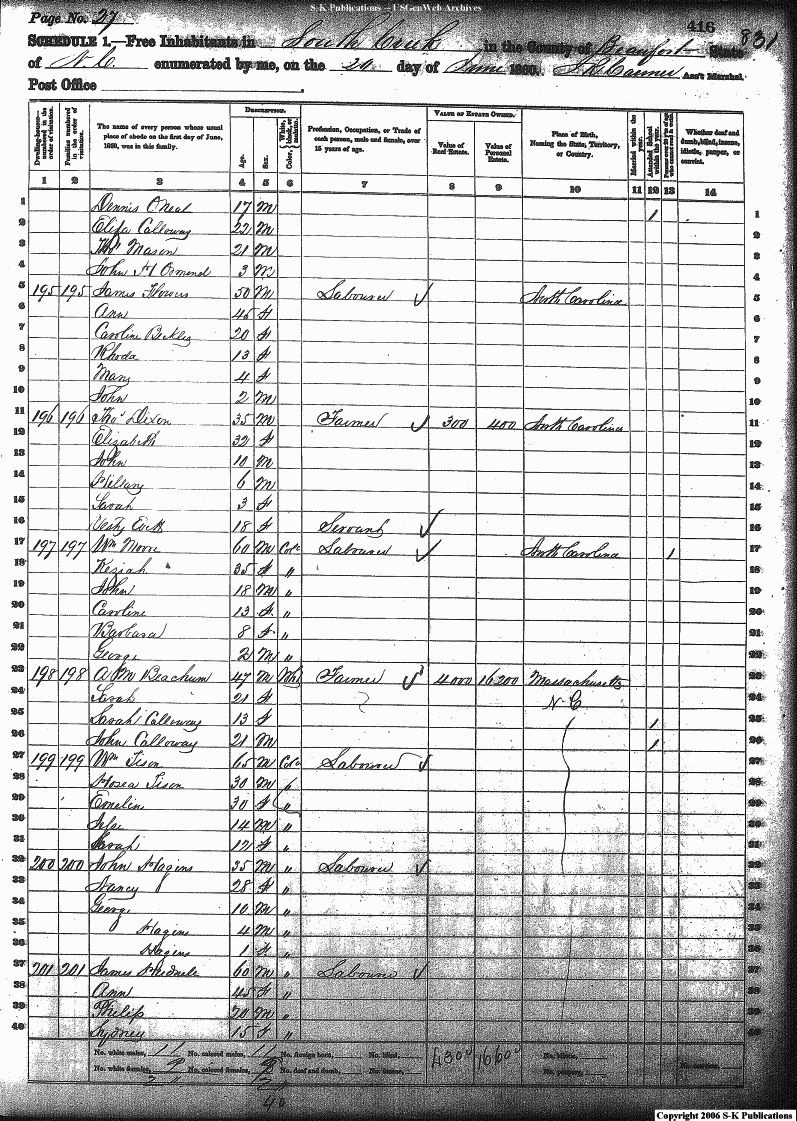 S-K Publications – USGenWeb Archives
Page No. 27
416
831
SCHEDULE 1.—Free Inhabitants in South Creek in the County of Beaufort State
of N.C. enumerated by me, on the 20 day of June 1860. Ass't Marshal.
Post Office
Dwelling-houses—numbered in the order of visitation.
Families numbered in the order of visitation.
The name of every person whose usual place of abode on the first day of June, 1860, was in this family.
DESCRIPTION.
Age.
Sex.
Color, White, black, or mulatto.
Profession, Occupation, or Trade of each person, male and female, over 15 years of age.
VALUE OF ESTATE OWNED.
Value of Real Estate.
Value of Personal Estate.
Place of Birth, Naming the State, Territory, or Country.
Married within the year.
Attended School within the year.
Whether deaf and dumb, blind, insane, idiotic, pauper, or convict.
1 2 3 4 5 6 7 8 9 10 11 12 13 14
1 Dennis O'Neal 17 M 1 1
2 Calloway 22 M 2
3 Thos Mason 21 M 3
4 John H Ormend 3 M 4
5 195 195 James Flowers 50 M Labourer North Carolina 5
6 Ann 45 f 6
7 Caroline 20 f 7
8 Rhoda 13 f 8
9 Mary 4 f 9
10 John 2 M 10
11 196 196 Thos Dixon 35 M Farmer 300 400 North Carolina 11
12 Elizabeth 32 f 12
13 John 10 M 13
14 6 M 14
15 Sarah 3 f 15
16 18 f Servant 16
17 197 197 Wm Moore 60 M Cold Labourer North Carolina 1 17
18 Keziah 35 f " 18
19 John 18 M " 19
20 Caroline 13 f " 20
21 Barbara 8 f " 21
22 George 2 M " 22
23 198 198 A M Beachum 47 M Wht Farmer 4000 16200 Massachusetts 23
24 Sarah 21 f N C 24
25 Sarah Calloway 13 f 1 25
26 John Calloway 21 M 1 26
27 199 199 Wm Tison 65 M Cold Labourer 27
28 Hosea Tison 30 M 28
29 Emeline 30 f " 29
30 14 M " 30
31 Sarah 12 f " 31
32 200 200 John Hagins 35 M " Labourer 32
33 Nancy 28 f " 33
34 George 10 M " 34
35 Hagins 4 M " 35
36 Hagins 1 f " 36
37 201 201 James 60 M " Labourer 37
38 Ann 45 f " 38
39 Philip 20 M " 39
40 Sydney 15 f " 40
No. white males, 11 No. colored males, 11 No. foreign born, No. blind, 4300 16600 No. idiotic, No. convicts,
No. white females, 9 No. colored females, 9 No. deaf and dumb, No. insane, No. paupers,
40
Copyright 2006 S-K Publications